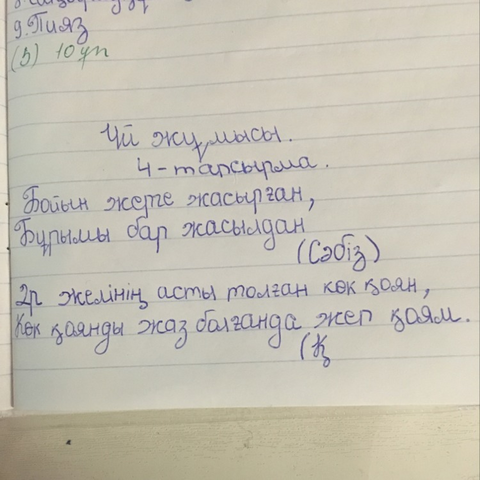 9. Пияз
(5) 10ұп
Үй жұмысы.
4-тапсырма.
Бойын жерге жасырған,
Бұрымы бар жасылдан
(Сәбіз)
2р желінің асты толған көк қоян,
Көк қоянды жаз болғанда жеп қоям.
(Қ